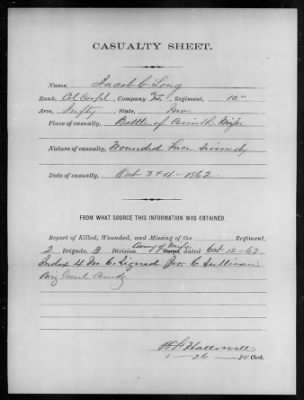 CASUALTY SHEET.
Name, Jacob C Long
Rank, Col Corpl, Company F, Regiment, 10"
Arm, Infty, State, Mo.
Place of casualty, Battle of Corinth Miss
Nature of casualty, Wounded Face severely
Date of casualty, Oct 3+4 - 1862.
FROM WHAT SOURCE THIS INFORMATION WAS OBTAINED.
Report of Killed, Wounded, and Missing of the Regiment,
2 Brigade, 3 Division, Army of Miss dated Oct 12-62.
Index 4 Mo C. Signed Jer. C Sullivan
Brig Genl Comdg
1 - 26 - Clerk.